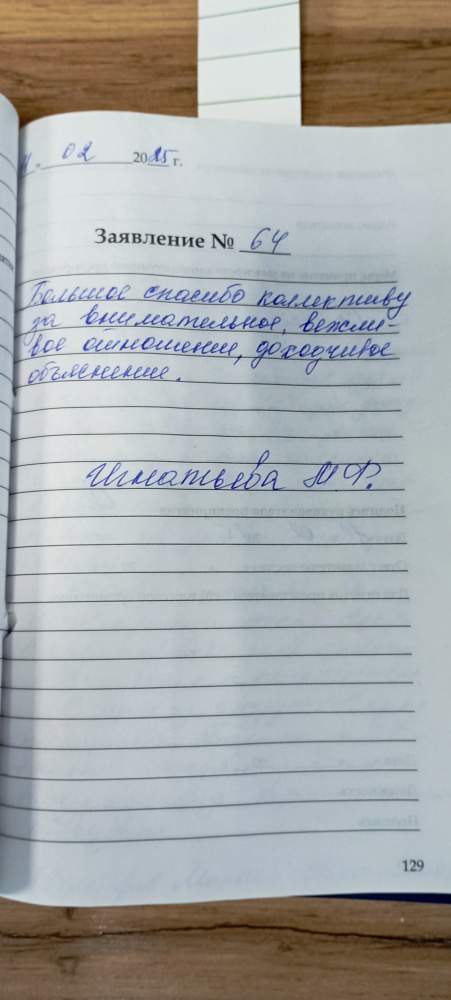 02 2025 г.
Заявление № 64
Большое спасибо коллективу
за внимательное, вежли-
вое отношение, доходчивое
объяснение.
Игнатьева М Ф.
129